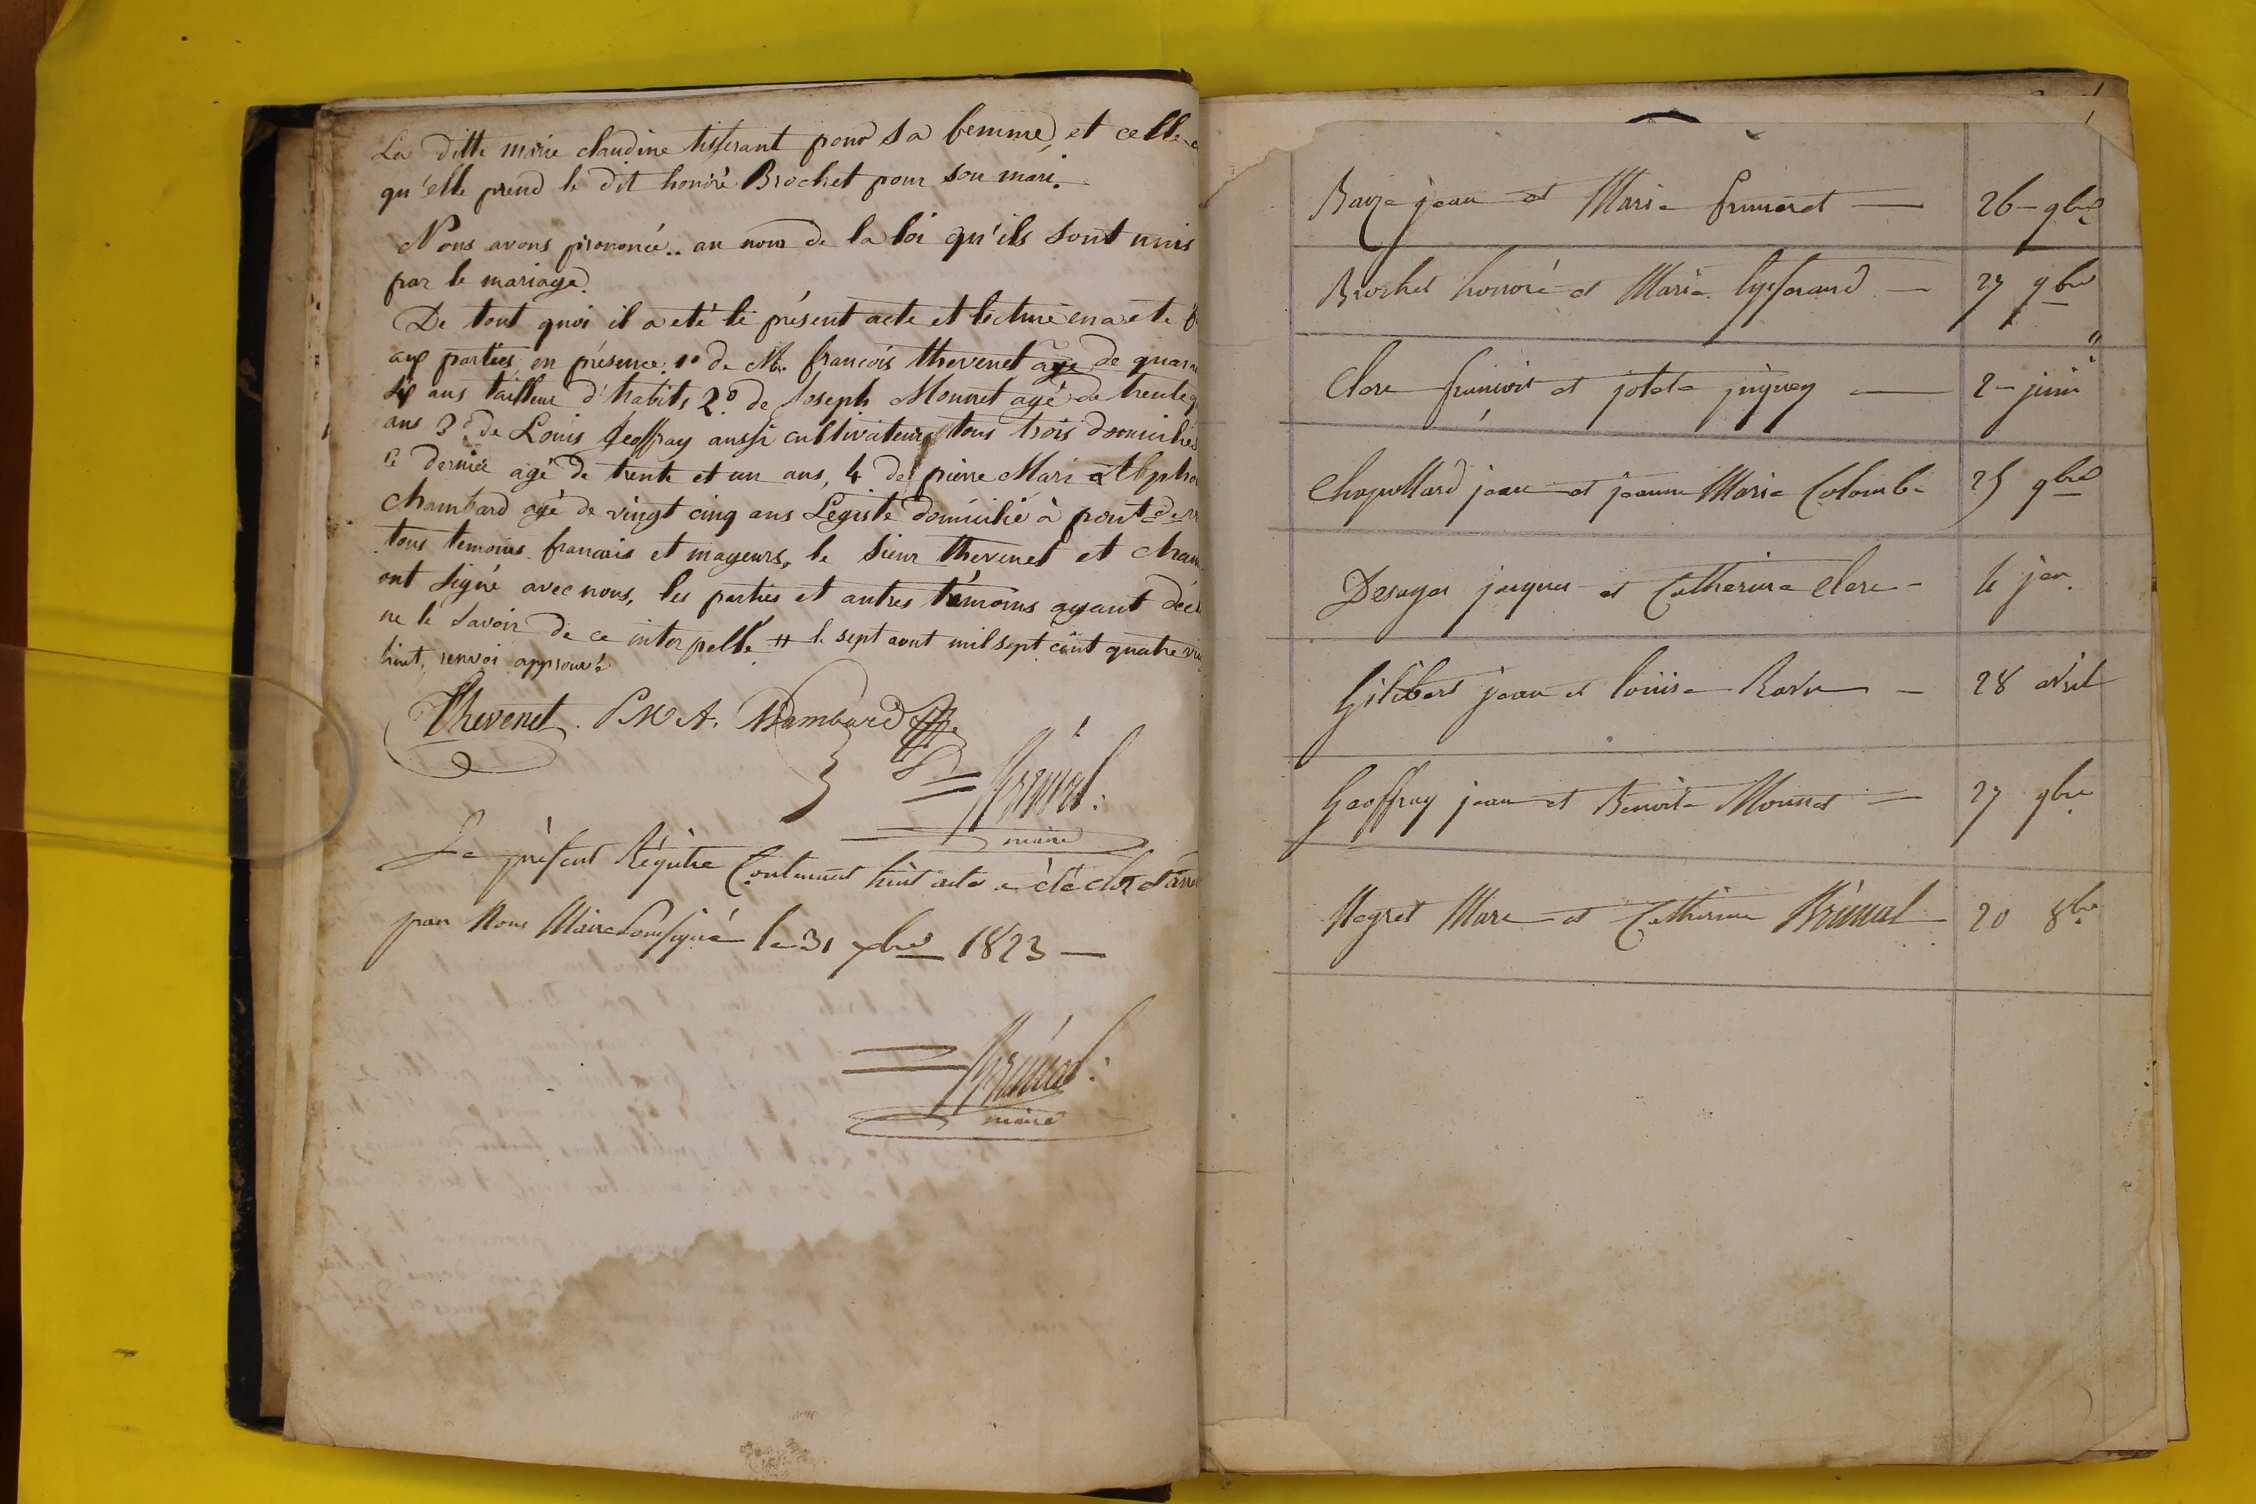 La ditte marie claudine tisserant pour sa femme, et celle
qu'elle prend le dit honoré Brochet pour son mari.
Nous avons prononcé.. au nom de la loi qu'ils sont unis
par le mariage.
De tout quoi il a été le présent acte et lecture en a ete
aux parties, en présence. 1o de Mr. francois thevenet agé de
six ans tailleur d'habits 2o de Joseph Monnet agé de trente
ans 3o de Louis Geoffray aussi cultivateurs tous trois domiciliés
ce dernier agé de trente et un ans, 4 de pierre Mari
Chambard agé de vingt cinq ans Légiste domicilié à pont de
tous temoins francais et mayeurs, le sieur thevenet et
ont signé avec nous, les parties et autres témoins ayant
ne le savoir de ce interpellé # le sept aout mil sept cent quatre
huit, renvoi approuvé
Thevenet. P M A. Chambard
Brünal.
maire
Le présent Régistre Contenant huit actes a été clos et
par Nous Maire soussigné le 31 xbre 1823 —
Brünal.
maire
jean et Marie — 26 – 9bre
Brochet honoré et Marie tysserand — 27 9bre
Clere francois et — 2 – juin
Chapellard jean et jeanne Marie Colomb 25 9bre
Desayes jacques et Catherine Clere – 4 jan.
Gilibert jean et louise Ravu — 28 avril
Geoffray jean et Benoite Monnet — 27 9bre
Negret Marc et Catherine Brünal – 20 8bre